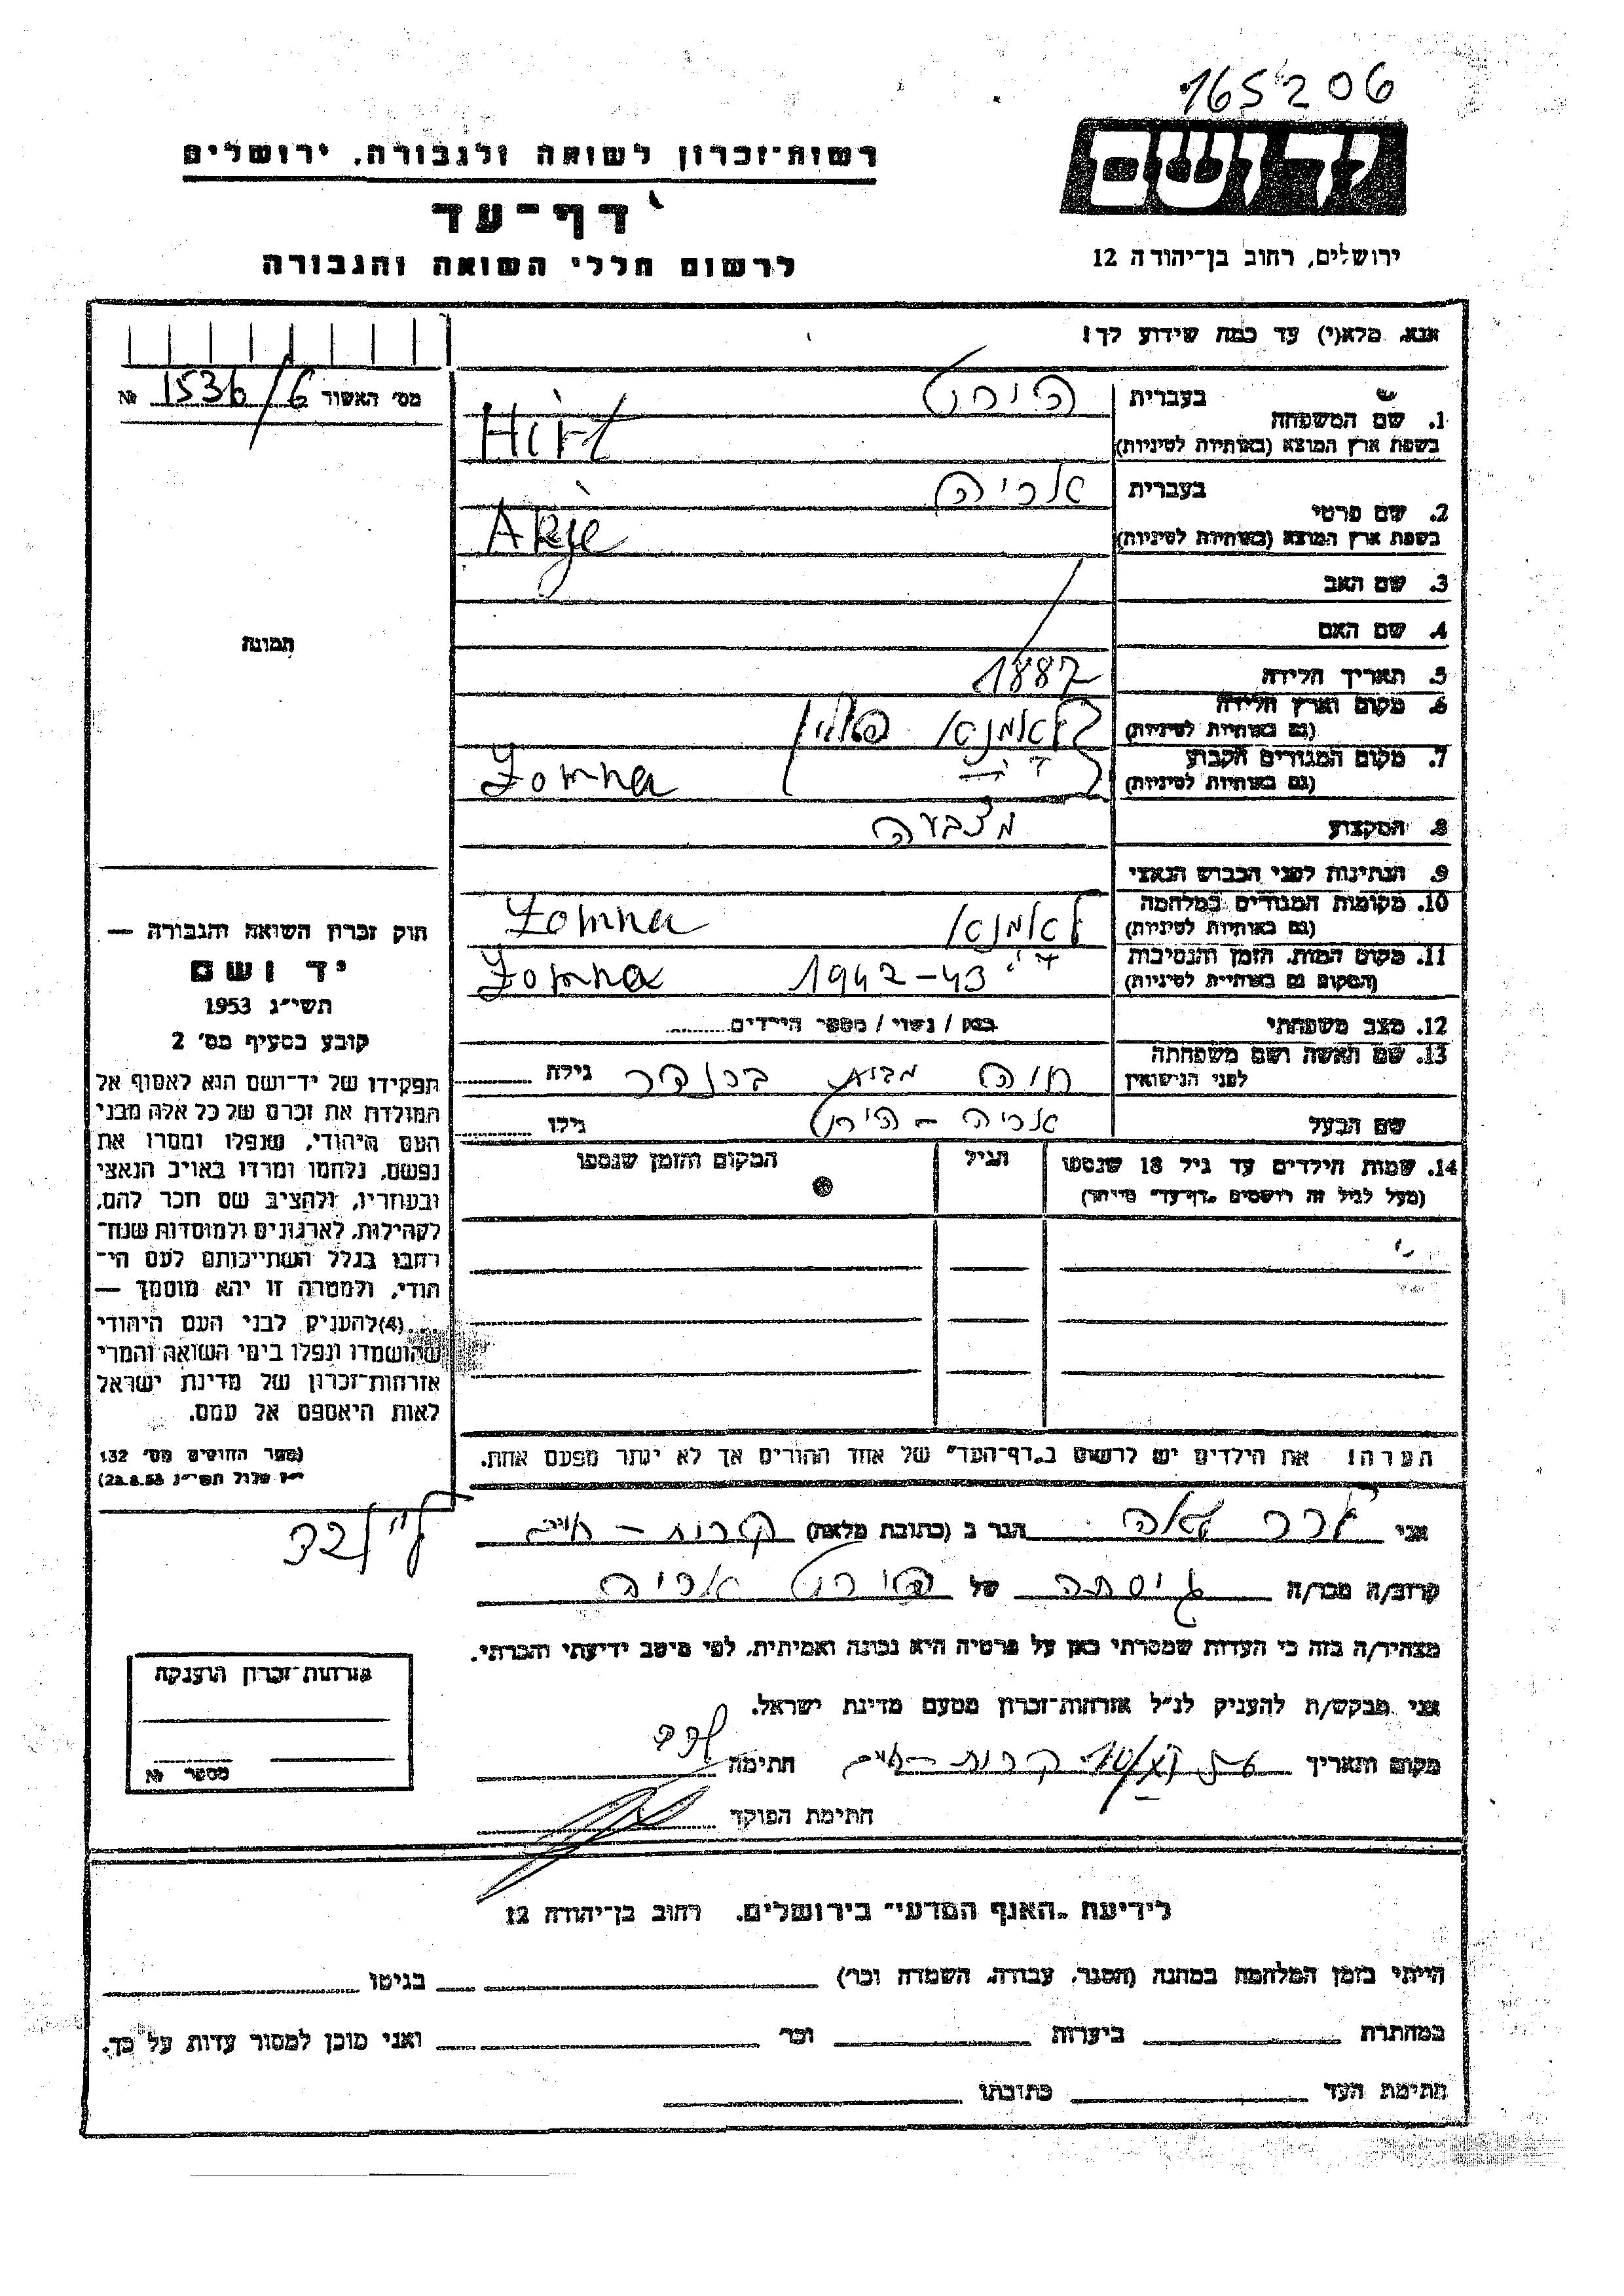 165206
רשות-זכרון לשואה ולגבורה, ירושלים
דף-עד
לרשום חללי השואה והגבורה
יד ושם
ירושלים, רחוב בן-יהודה 12
אנא, מלא(י) עד כמה שידוע לך!
מס׳ האשור 1536/6 №
תמונה
1. שם המשפחה
בעברית הירט
בשפת ארץ המוצא (באותיות לטיניות) Hirt
2. שם פרטי
בעברית אריה
בשפת ארץ המוצא (באותיות לטיניות) Arje
3. שם האב
4. שם האם
5. תאריך הלידה 1887
6. מקום וארץ הלידה
(גם באותיות לטיניות)
7. מקום המגורים הקבוע
(גם באותיות לטיניות) Łomna
8. המקצוע
9. הנתינות לפני הכבוש הנאצי
10. מקומות המגורים במלחמה
(גם באותיות לטיניות) לאמנא Łomna
11. מקום המות, הזמן והנסיבות
(המקום גם באותיות לטיניות) 1942-43 Łomna
12. מצב משפחתי רווק / נשוי / מספר הילדים
13. שם האשה ושם משפחתה
לפני הנישואין חוה מבית גילה
שם הבעל אריה - הירט גילו
14. שמות הילדים עד גיל 18 שנספו הגיל המקום והזמן שנספו
(מעל לגיל זה רושמים „דף-עד״ מיוחד)
הערה! את הילדים יש לרשום ב„דף-העד״ של אחד ההורים אך לא יותר מפעם אחת.
חוק זכרון השואה והגבורה —
יד ושם
תשי״ג 1953
קובע בסעיף מס׳ 2
תפקידו של יד-ושם הוא לאסוף אל
המולדת את זכרם של כל אלה מבני
העם היהודי, שנפלו ומסרו את
נפשם, נלחמו ומרדו באויב הנאצי
ובעוזריו, ולהציב שם וזכר להם,
לקהילות, לארגונים ולמוסדות שנח-
רבו בגלל השתייכותם לעם הי-
הודי, ולמטרה זו יהא מוסמך —
...(4)להעניק לבני העם היהודי
שהושמדו ונפלו בימי השואה והמרי
אזרחות-זכרון של מדינת ישראל
לאות היאספם אל עמם.
(ספר החוקים מס׳ 132
י״ז אלול תשי״ג 28.8.53)
אני הגר ב (כתובת מלאה) קרית - חיים
קרוב/ה מכר/ה גיסתה של הירט אריה
מצהיר/ה בזה כי העדות שמסרתי כאן על פרטיה היא נכונה ואמיתית, לפי מיטב ידיעתי והכרתי.
אני מבקש/ת להעניק לנ״ל אזרחות-זכרון מטעם מדינת ישראל.
מקום ותאריך קרית - חיים חתימה
חתימת הפוקד
אזרחות-זכרון הוענקה
מספר №
לידיעת „האגף המדעי״ בירושלים. רחוב בן-יהודה 12
הייתי בזמן המלחמה במחנה (הסגר, עבודה, השמדה וכו׳) בגיטו
במחתרת ביערות וכו׳ ואני מוכן למסור עדות על כך.
חתימת העד כתובתו